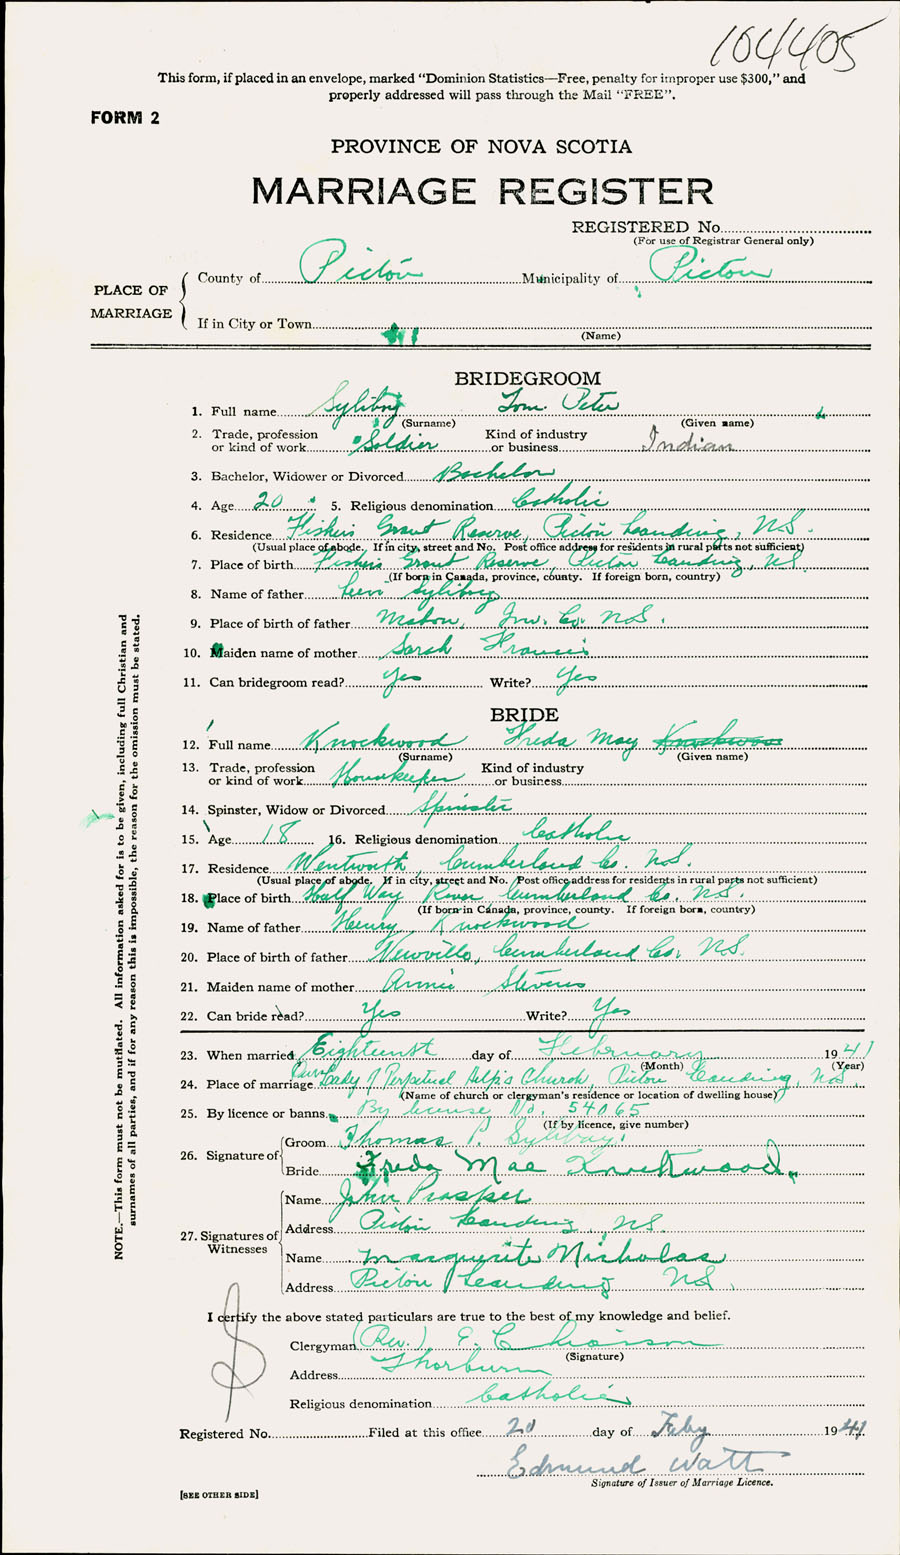 104405
This form, if placed in an envelope, marked "Dominion Statistics—Free, penalty for improper use $300," and
properly addressed will pass through the Mail "FREE".
FORM 2
PROVINCE OF NOVA SCOTIA
MARRIAGE REGISTER
REGISTERED No.
(For use of Registrar General only)
PLACE OF MARRIAGE
County of Pictou Municipality of Pictou
If in City or Town
(Name)
BRIDEGROOM
1. Full name Syliboy Tom Peter
(Surname) (Given name)
2. Trade, profession or kind of work Soldier Kind of industry or business Indian
3. Bachelor, Widower or Divorced Bachelor
4. Age 20 5. Religious denomination Catholic
6. Residence Fishers Grant Reserve, Pictou Landing, N.S.
(Usual place of abode. If in city, street and No. Post office address for residents in rural parts not sufficient)
7. Place of birth Fishers Grant Reserve, Pictou Landing, N.S.
(If born in Canada, province, county. If foreign born, country)
8. Name of father Levi Syliboy
9. Place of birth of father Mabou, Inv. Co. N.S.
10. Maiden name of mother Sarah Francis
11. Can bridegroom read? Yes Write? Yes
BRIDE
12. Full name Knockwood Freda May Knockwood
(Surname) (Given name)
13. Trade, profession or kind of work Housekeeper Kind of industry or business
14. Spinster, Widow or Divorced Spinster
15. Age 18 16. Religious denomination Catholic
17. Residence Wentworth, Cumberland Co. N.S.
(Usual place of abode. If in city, street and No. Post office address for residents in rural parts not sufficient)
18. Place of birth Half Way River Cumberland Co. N.S.
(If born in Canada, province, county. If foreign born, country)
19. Name of father Henry Knockwood
20. Place of birth of father Newville, Cumberland Co. N.S.
21. Maiden name of mother Annie Stevens
22. Can bride read? Yes Write? Yes
23. When married Eighteenth day of February 1941
(Month) (Year)
24. Place of marriage Our Lady of Perpetual Help's Church, Pictou Landing, N.S.
(Name of church or clergyman's residence or location of dwelling house)
25. By licence or banns By license No. 54065
(If by licence, give number)
26. Signature of
Groom Thomas P. Syliboy.
Bride Freda Mae Knockwood
27. Signatures of Witnesses
Name John Prosper
Address Pictou Landing, N.S.
Name Marguerite Nicholas
Address Pictou Landing N.S.
I certify the above stated particulars are true to the best of my knowledge and belief.
Clergyman (Rev.) E. Chiasson
(Signature)
Address Thorburn
Religious denomination Catholic
Registered No. Filed at this office 20 day of Feby 1941
Edmund Watt
Signature of Issuer of Marriage Licence.
[SEE OTHER SIDE]
NOTE.—This form must not be mutilated. All information asked for is to be given, including full Christian and
surnames of all parties, and if for any reason this is impossible, the reason for the omission must be stated.